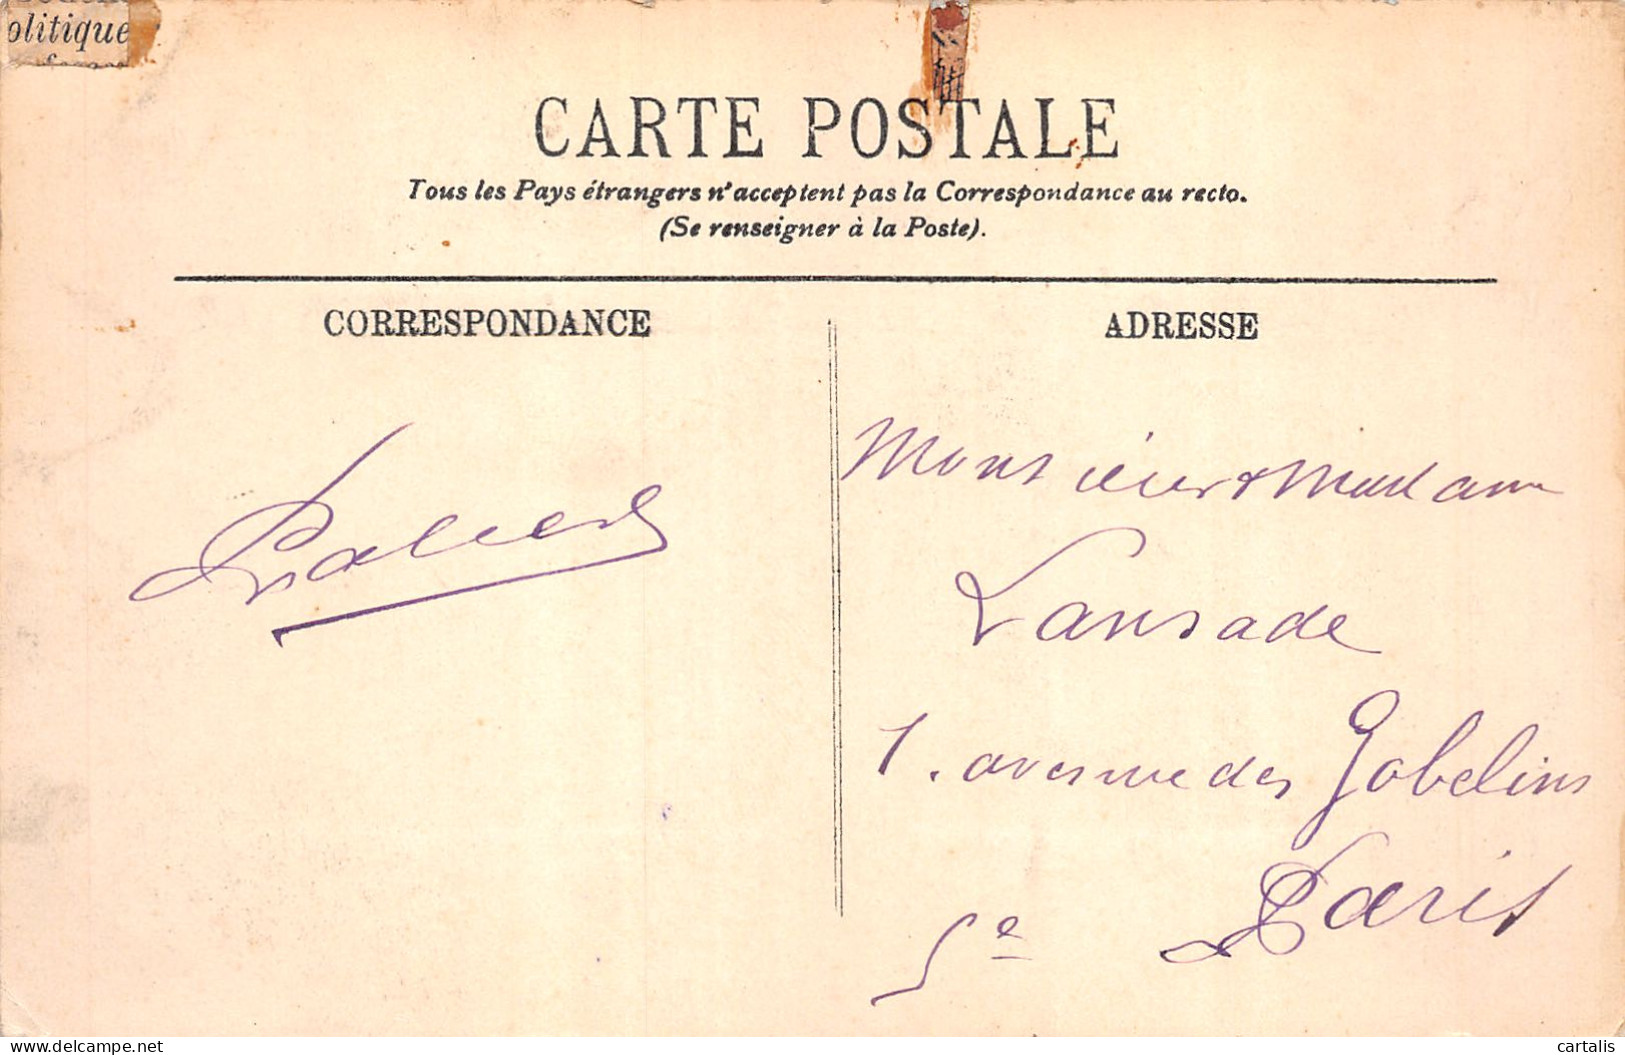 olitique
CARTE POSTALE
Tous les Pays étrangers n'acceptent pas la Correspondance au recto.
(Se renseigner à la Poste).
CORRESPONDANCE
ADRESSE
Monsieur & Madame
Lansade
1. avenue des Gobelins
Paris
5e
delcampe.net
cartalis